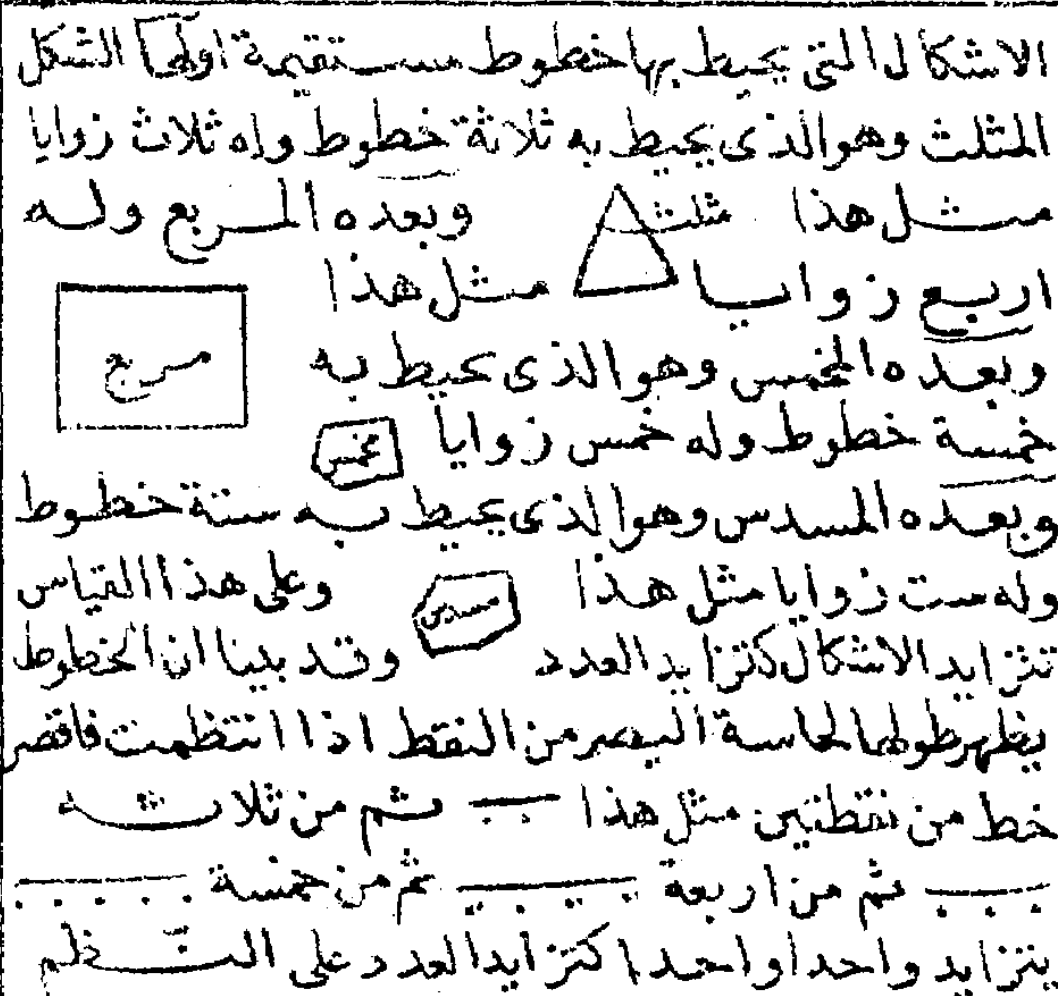 الاشكال التى يحيط بها خطوط مستقيمة اولها الشكل
المثلث وهو الذى يحيط به ثلاثة خطوط وله ثلاث زوايا
مثل هذا مثلث وبعده المربع وله
اربع زوايا مثل هذا
مربع
وبعده المخمس وهو الذى يحيط به
خمسة خطوط وله خمس زوايا مخمس
وبعده المسدس وهو الذى يحيط به ستة خطوط
وله ست زوايا مثل هذا مسدس وعلى هذا القياس
تتزايد الاشكال كتزايد العدد وقد بينا ان الخطوط
يظهر طولها لحاسة البصر من النقط اذا انتظمت فاقصر
خط من نقطتين مثل هذا ثم من ثلاثه
ثم من اربعة ثم من خمسة
يتزايد واحدا واحدا كتزايد العدد على النظم